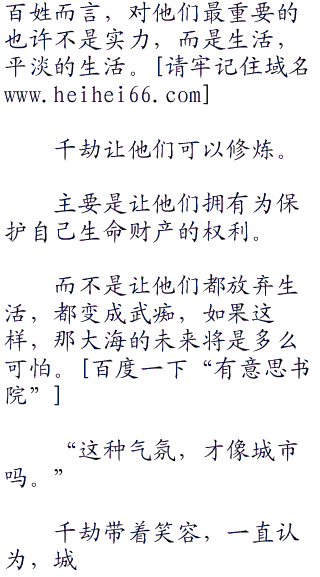 百姓而言，对他们最重要的
也许不是实力，而是生活，
平淡的生活。[请牢记住域名
www.heihei66.com]
千劫让他们可以修炼。
主要是让他们拥有为保
护自己生命财产的权利。
而不是让他们都放弃生
活，都变成武痴，如果这
样，那大海的未来将是多么
可怕。[百度一下“有意思书
院”]
“这种气氛，才像城市
吗。”
千劫带着笑容，一直认
为，城